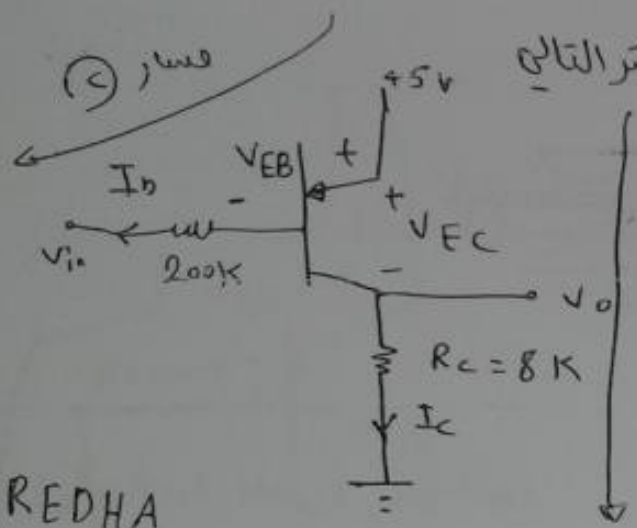 مسار ②
التالي
+5v
V_EB + -
I_b
+ V_EC -
V_in
200K
V_o
R_c = 8 K
I_c
REDHA